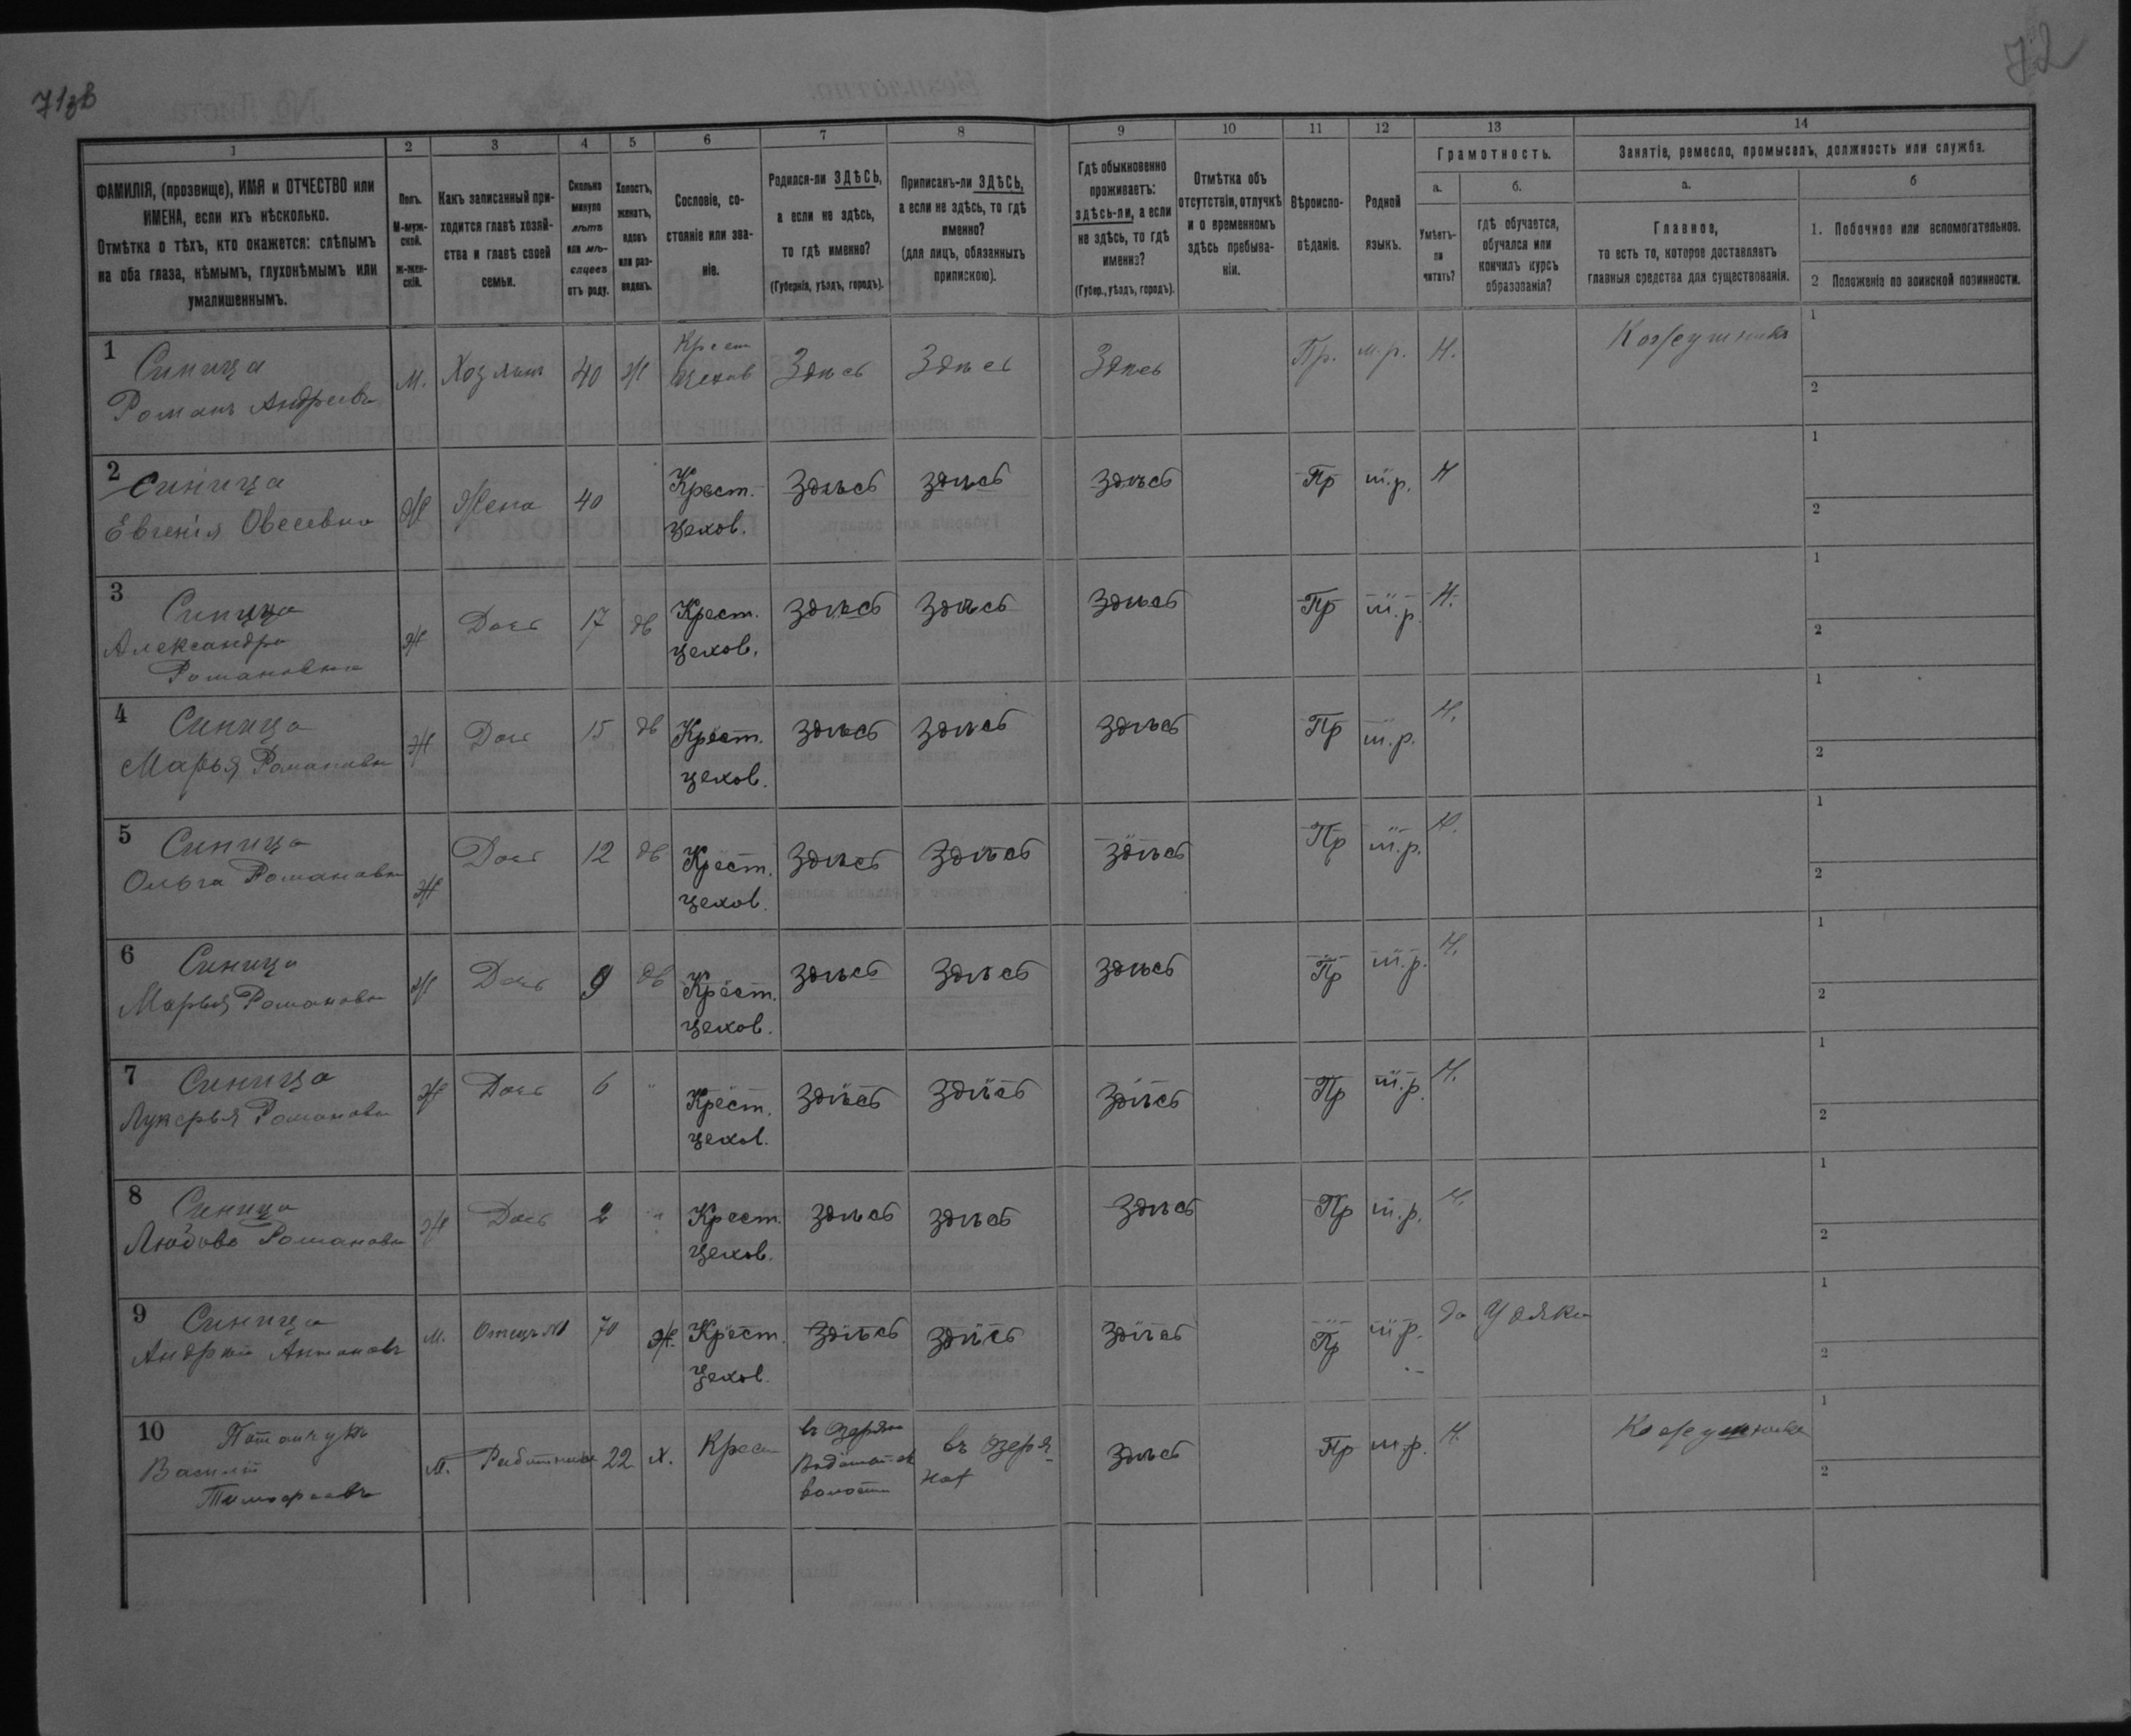 71зв
72
1
2
3
4
5
6
7
8
9
10
11
12
13
14
ФАМИЛІЯ, (прозвище), ИМЯ и ОТЧЕСТВО или
ИМЕНА, если ихъ нѣсколько.
Отмѣтка о тѣхъ, кто окажется: слѣпымъ
на оба глаза, нѣмымъ, глухонѣмымъ или
умалишеннымъ.
Полъ.
М-муж-
ской.
Ж-жен-
скій.
Какъ записанный при-
ходится главѣ хозяй-
ства и главѣ своей
семьи.
Сколько
минуло
лѣтъ
или мѣ-
сяцевъ
отъ роду.
Холостъ,
женатъ,
вдовъ
или раз-
веденъ.
Сословіе, со-
стояніе или зва-
ніе.
Родился-ли ЗДѢСЬ,
а если не здѣсь,
то гдѣ именно?
(Губернія, уѣздъ, городъ).
Приписанъ-ли ЗДѢСЬ,
а если не здѣсь, то гдѣ
именно?
(для лицъ, обязанныхъ
припискою).
Гдѣ обыкновенно
проживаетъ:
здѣсь-ли, а если
не здѣсь, то гдѣ
именно?
(Губер., уѣздъ, городъ).
Отмѣтка объ
отсутствіи, отлучкѣ
и о временномъ
здѣсь пребыва-
ніи.
Вѣроиспо-
вѣданіе.
Родной
языкъ.
Грамотность.
а.
б.
Умѣетъ-
ли
читать?
гдѣ обучается,
обучался или
кончилъ курсъ
образованія?
Занятіе, ремесло, промыселъ, должность или служба.
а.
б
Главное,
то есть то, которое доставляетъ
главныя средства для существованія.
1. Побочное или вспомогательное.
2 Положеніе по воинской повинности.
1 Синица М. Хозяинъ 40 Ж Крест Здѣсь Здѣсь Здѣсь Пр. м.р. Н. 1
Романъ Андреевъ Цехов 2
2 Синица Ж Жена 40 Крест. Здѣсь Здѣсь Здѣсь Пр м.р. Н 1
Евгенія Овсеевна Цехов. 2
3 Синица Ж Дочь 17 дв Крест. Здѣсь Здѣсь Здѣсь Пр м.р. Н. 1
Александра цехов. 2
Романовна
4 Синица Ж Дочь 15 дв Крест. Здѣсь Здѣсь Здѣсь Пр м.р. Н. 1
Марья Романовн цехов. 2
5 Синица Ж Дочь 12 дв Крест. Здѣсь Здѣсь Здѣсь Пр м.р. Н. 1
Ольга Романовн цехов. 2
6 Синица Ж Дочь 9 дв Крест. Здѣсь Здѣсь Здѣсь Пр м.р. Н. 1
Марья Романовн цехов. 2
7 Синица Ж Дочь 6 " Крест. Здѣсь Здѣсь Здѣсь Пр м.р. Н. 1
Лукерья Романовн цехов. 2
8 Синица Ж Дочь 2 " Крест. Здѣсь Здѣсь Здѣсь Пр м.р. Н. 1
Любовь Романовн Цехов. 2
9 Синица М. Отецъ 70 Ж. Крест. Здѣсь Здѣсь Здѣсь Пр м.р. да У дяка 1
Андрей Антоновъ Цехов. 2
10 М. Работникъ 22 Х. Крест въ въ Озеря- Здѣсь Пр м.р. Н. 1
Василій волости 2
Тимофеевъ